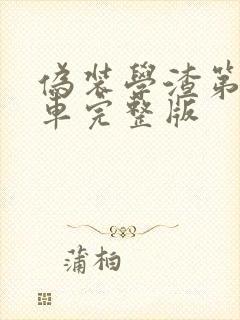 偽裝學渣第
車完整版
蒲柏